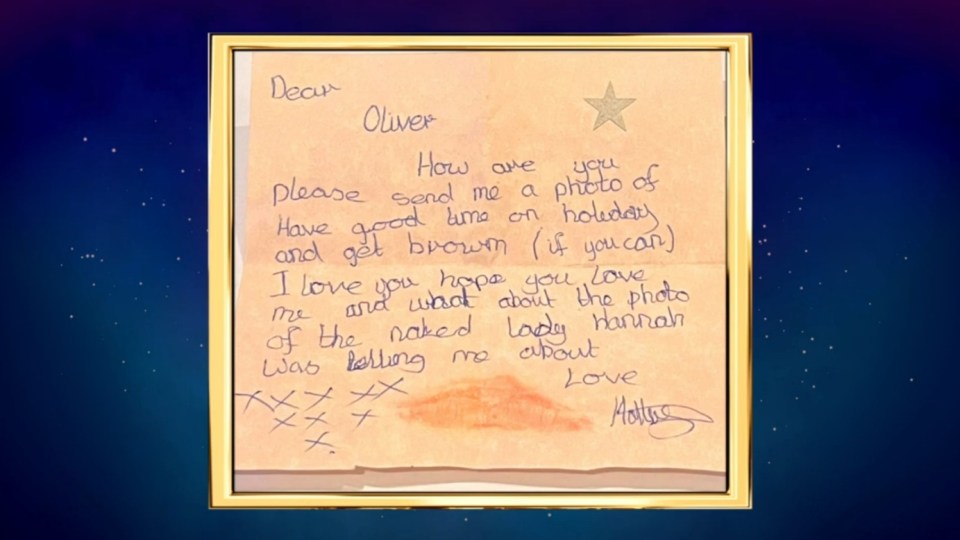 Dear
Oliver
How are you
please send me a photo of
Have good time on holiday
and get brown (if you can)
I love you hope you Love
me and what about the photo
of the naked lady Hannah
was telling me about
Love
XXX XX
XX X
X.